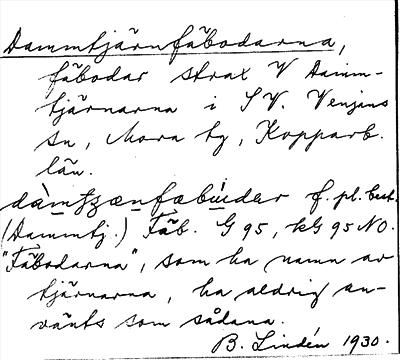 Dammtjärnfäbodarna,
fäbodar strax V Damm-
tjärnarna i SV. Venjans
sn, Mora tg, Kopparb.
län.
(Dammtj.) Fäb. G 95, kG 95 NO.
"Fäbodarna", som ha namn av
tjärnarna, ha aldrig an-
vänts som sådana.
B. Lindén 1930.